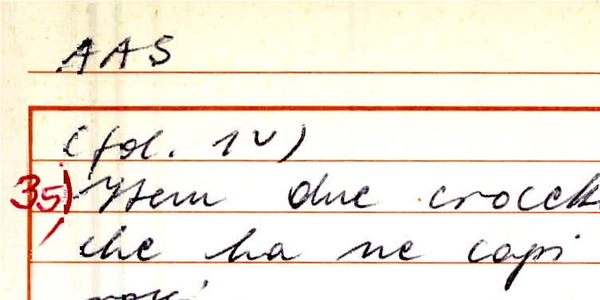 AAS
(fol. 1v)
35) Item due
che ha ne capi